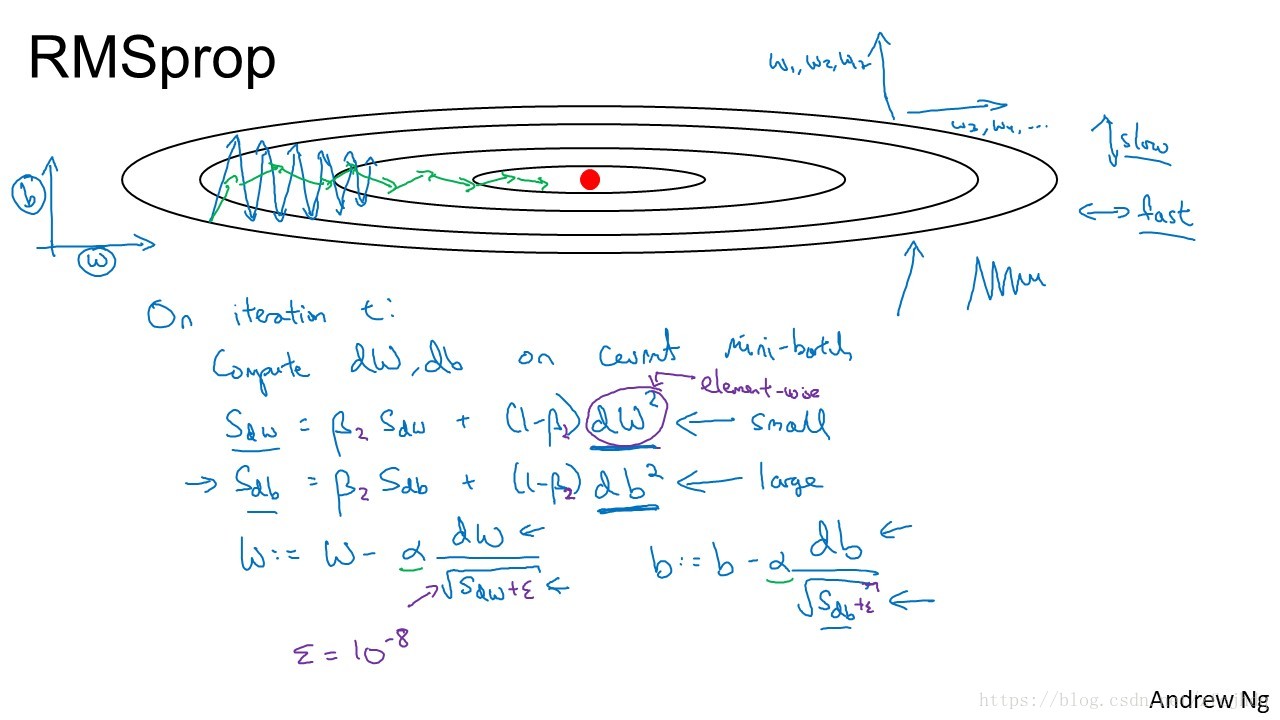 RMSprop
w₁, w₂, w₂
w₃, w₄, ...
↕ slow
↔ fast
b
w
On iteration t:
Compute dW, db on current mini-batch
element-wise
S_dw = β₂ S_dw + (1-β₂) dW² ← small
→ S_db = β₂ S_db + (1-β₂) db² ← large
W := W - α dW / √(S_dw + ε) ←
b := b - α db / √(S_db + ε) ←
ε = 10⁻⁸
Andrew Ng